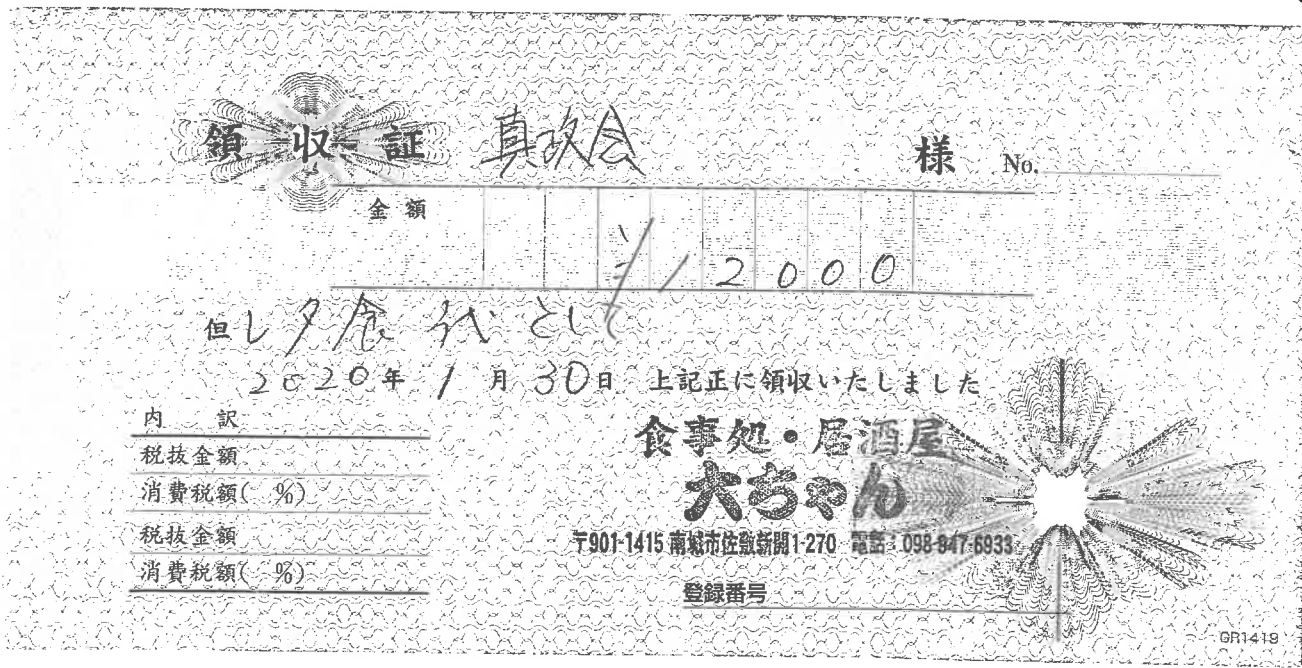 領収証 真政会 様 No.
金額
¥12000
但し夕食代として
2020年1月30日 上記正に領収いたしました
内訳
税抜金額
消費税額( %)
税抜金額
消費税額( %)
食事処・居酒屋
大ちゃん
〒901-1415 南城市佐敷新開1-270 電話:098-947-6933
登録番号
GR1419